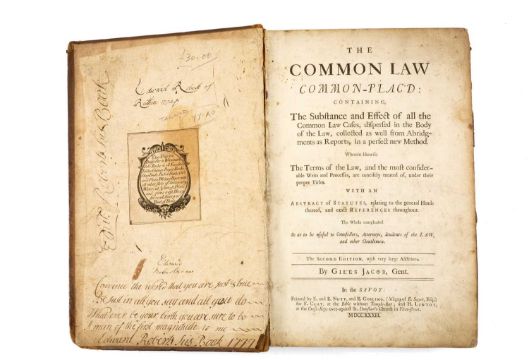 £30.00
Edward Roberts of
Edw. Roberts his Book
Convince the world that you are just & true
Be Just in all you say and all you do
Whatever be your birth you're sure to be
A man of the first magnitude to me
Edward Roberts his Book 1777
THE
COMMON LAW
COMMON-PLAC'D:
CONTAINING,
The Substance and Effect of all the
Common Law Cases, dispersed in the Body
of the Law, collected as well from Abridg-
ments as Reports, in a perfect new Method.
Wherein likewise
The Terms of the Law, and the most consider-
able Writs and Processes, are concisely treated of, under their
proper Titles.
WITH AN
ABSTRACT of STATUTES, relating to the general Heads
thereof, and exact REFERENCES throughout.
The Whole compleated
So as to be useful to Counsellors, Attorneys, Students of the LAW,
and other Gentlemen.
The SECOND EDITION, with very large Additions.
By GILES JACOB, Gent.
In the SAVOY:
Printed by E. and R. NUTT, and R. GOSLING, (Assigns of E. Sayer, Esq;)
for F. CLAY, at the Bible without Temple-Bar, and H. LINTOT,
at the Cross-Keys over-against St. Dunstan's Church in Fleetstreet.
MDCCXXXIII.